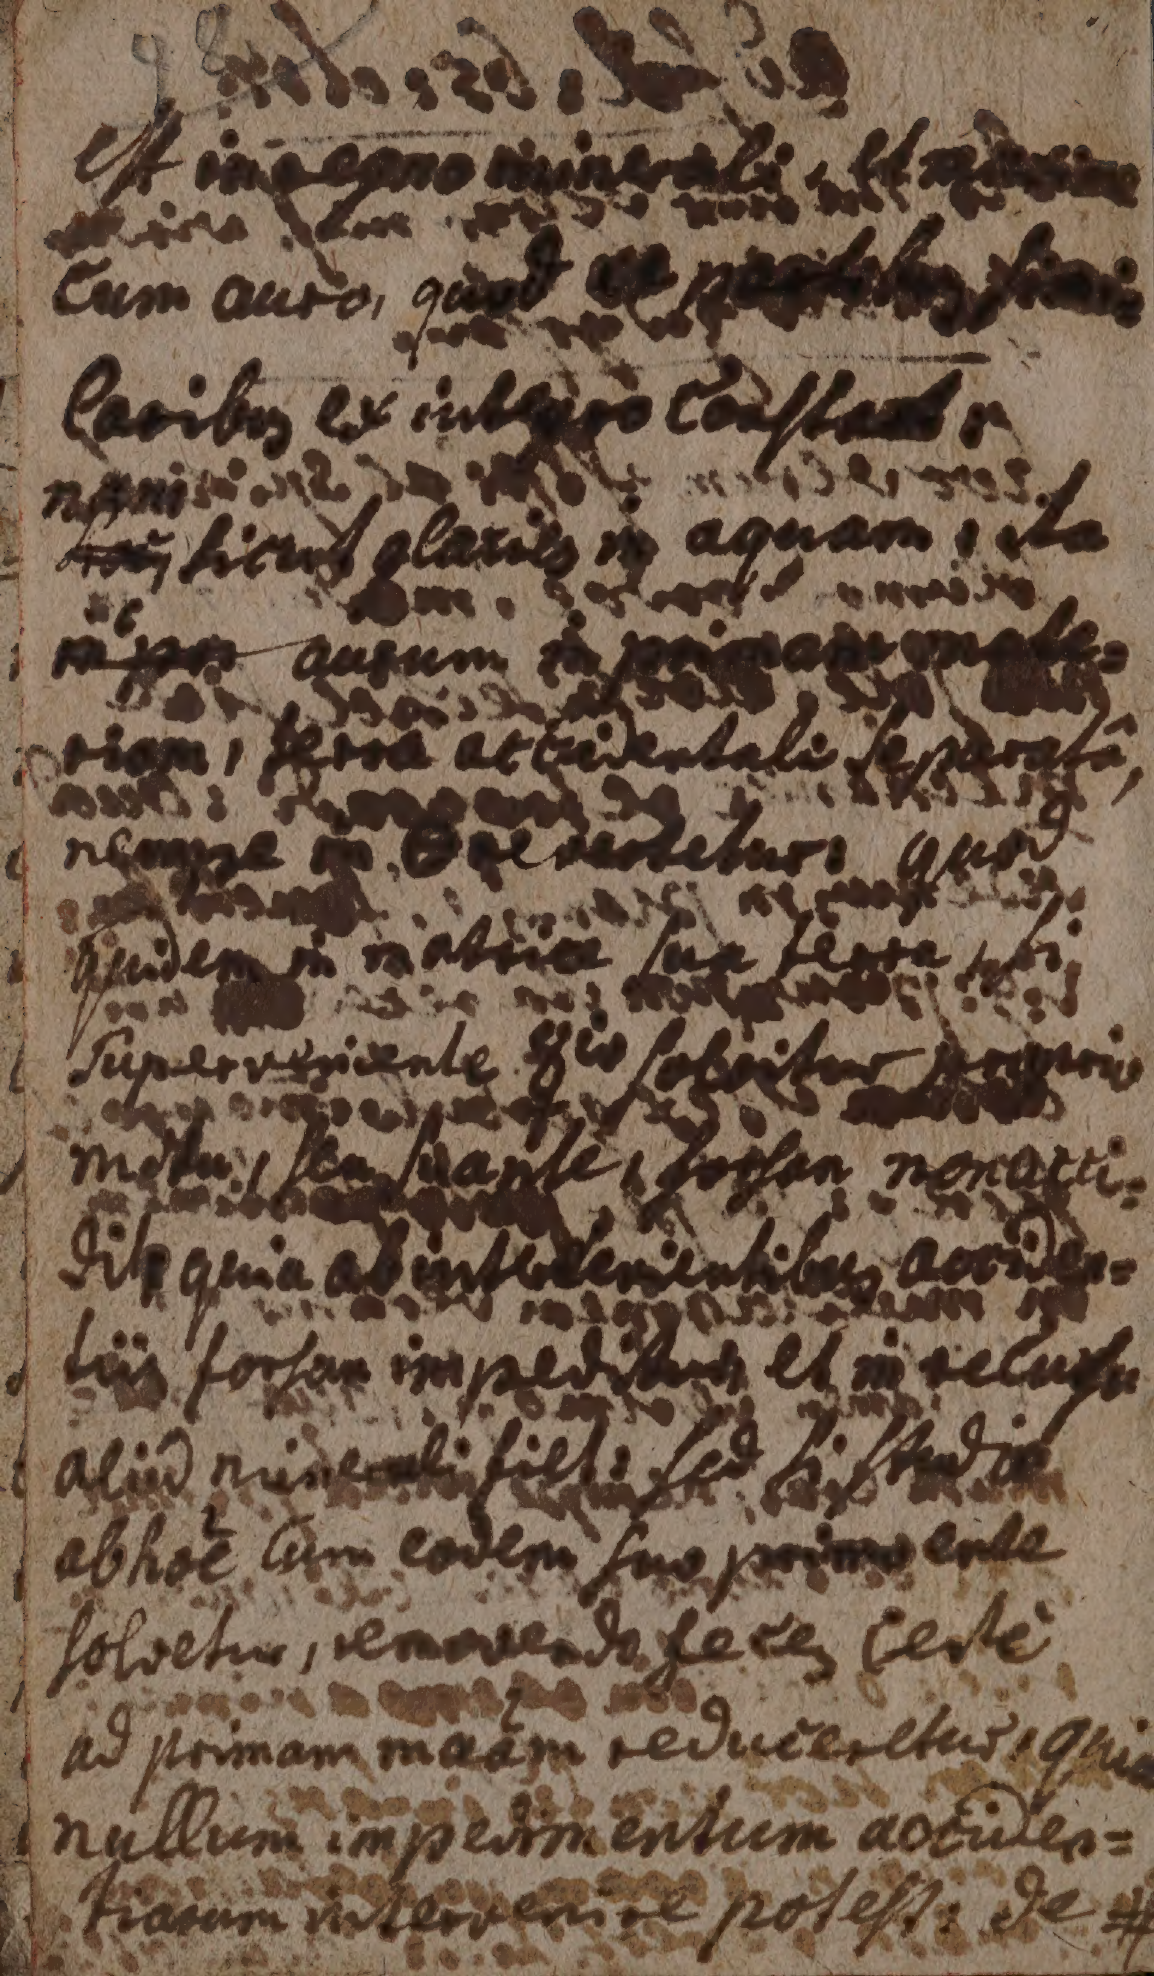 98
est in regno minerali, et maxime
Cum auro, quod ex partibus simi-
laribus ex integro Constat:
nam
sicut glacies in aquam, ita
sic
aurum in primam mate=
riam, terra accidentali separatâ,
nempe in ☿ revertetur: quod
quidem in matrice sua terra, si
superveniente ☿io solvitur proprio
motu, seu suapte, forsan non acci=
dit, quia ab intervenientibus acciden=
tiis forsan impeditur, et in recursu
aliud minerali fiet: sed si studio
ab hoc̃ Cum eodem suo primo ente
solvetur, removendo feces Certè
ad primam maãm reduceretur, quia
nullum impedimentum acciden=
tiarum intervenire potest: de #